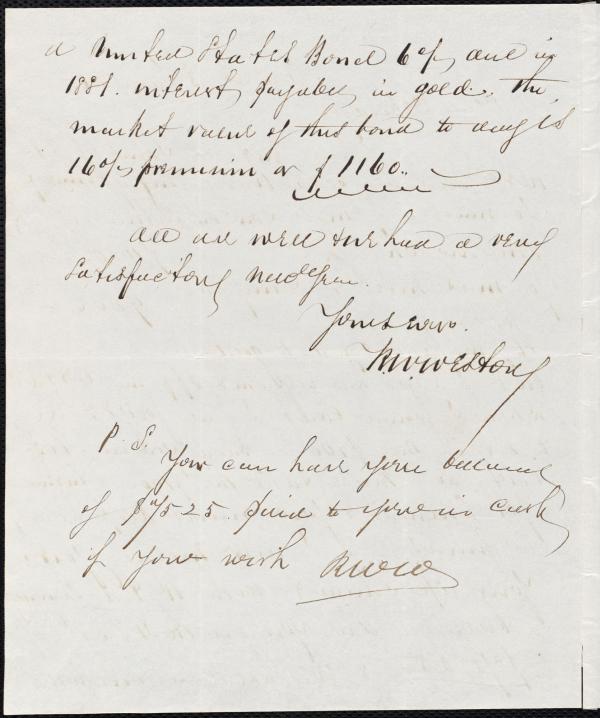 a United States Bond 6 % due in
1881. interest payable in gold. The
market value of this bond to day is
16 % premium or $1160..
All are well & we had a very
satisfactory New Year.
Yours ever.
Weston
P. S. You can have your balance
of $ 525. paid to you in cash
if you wish